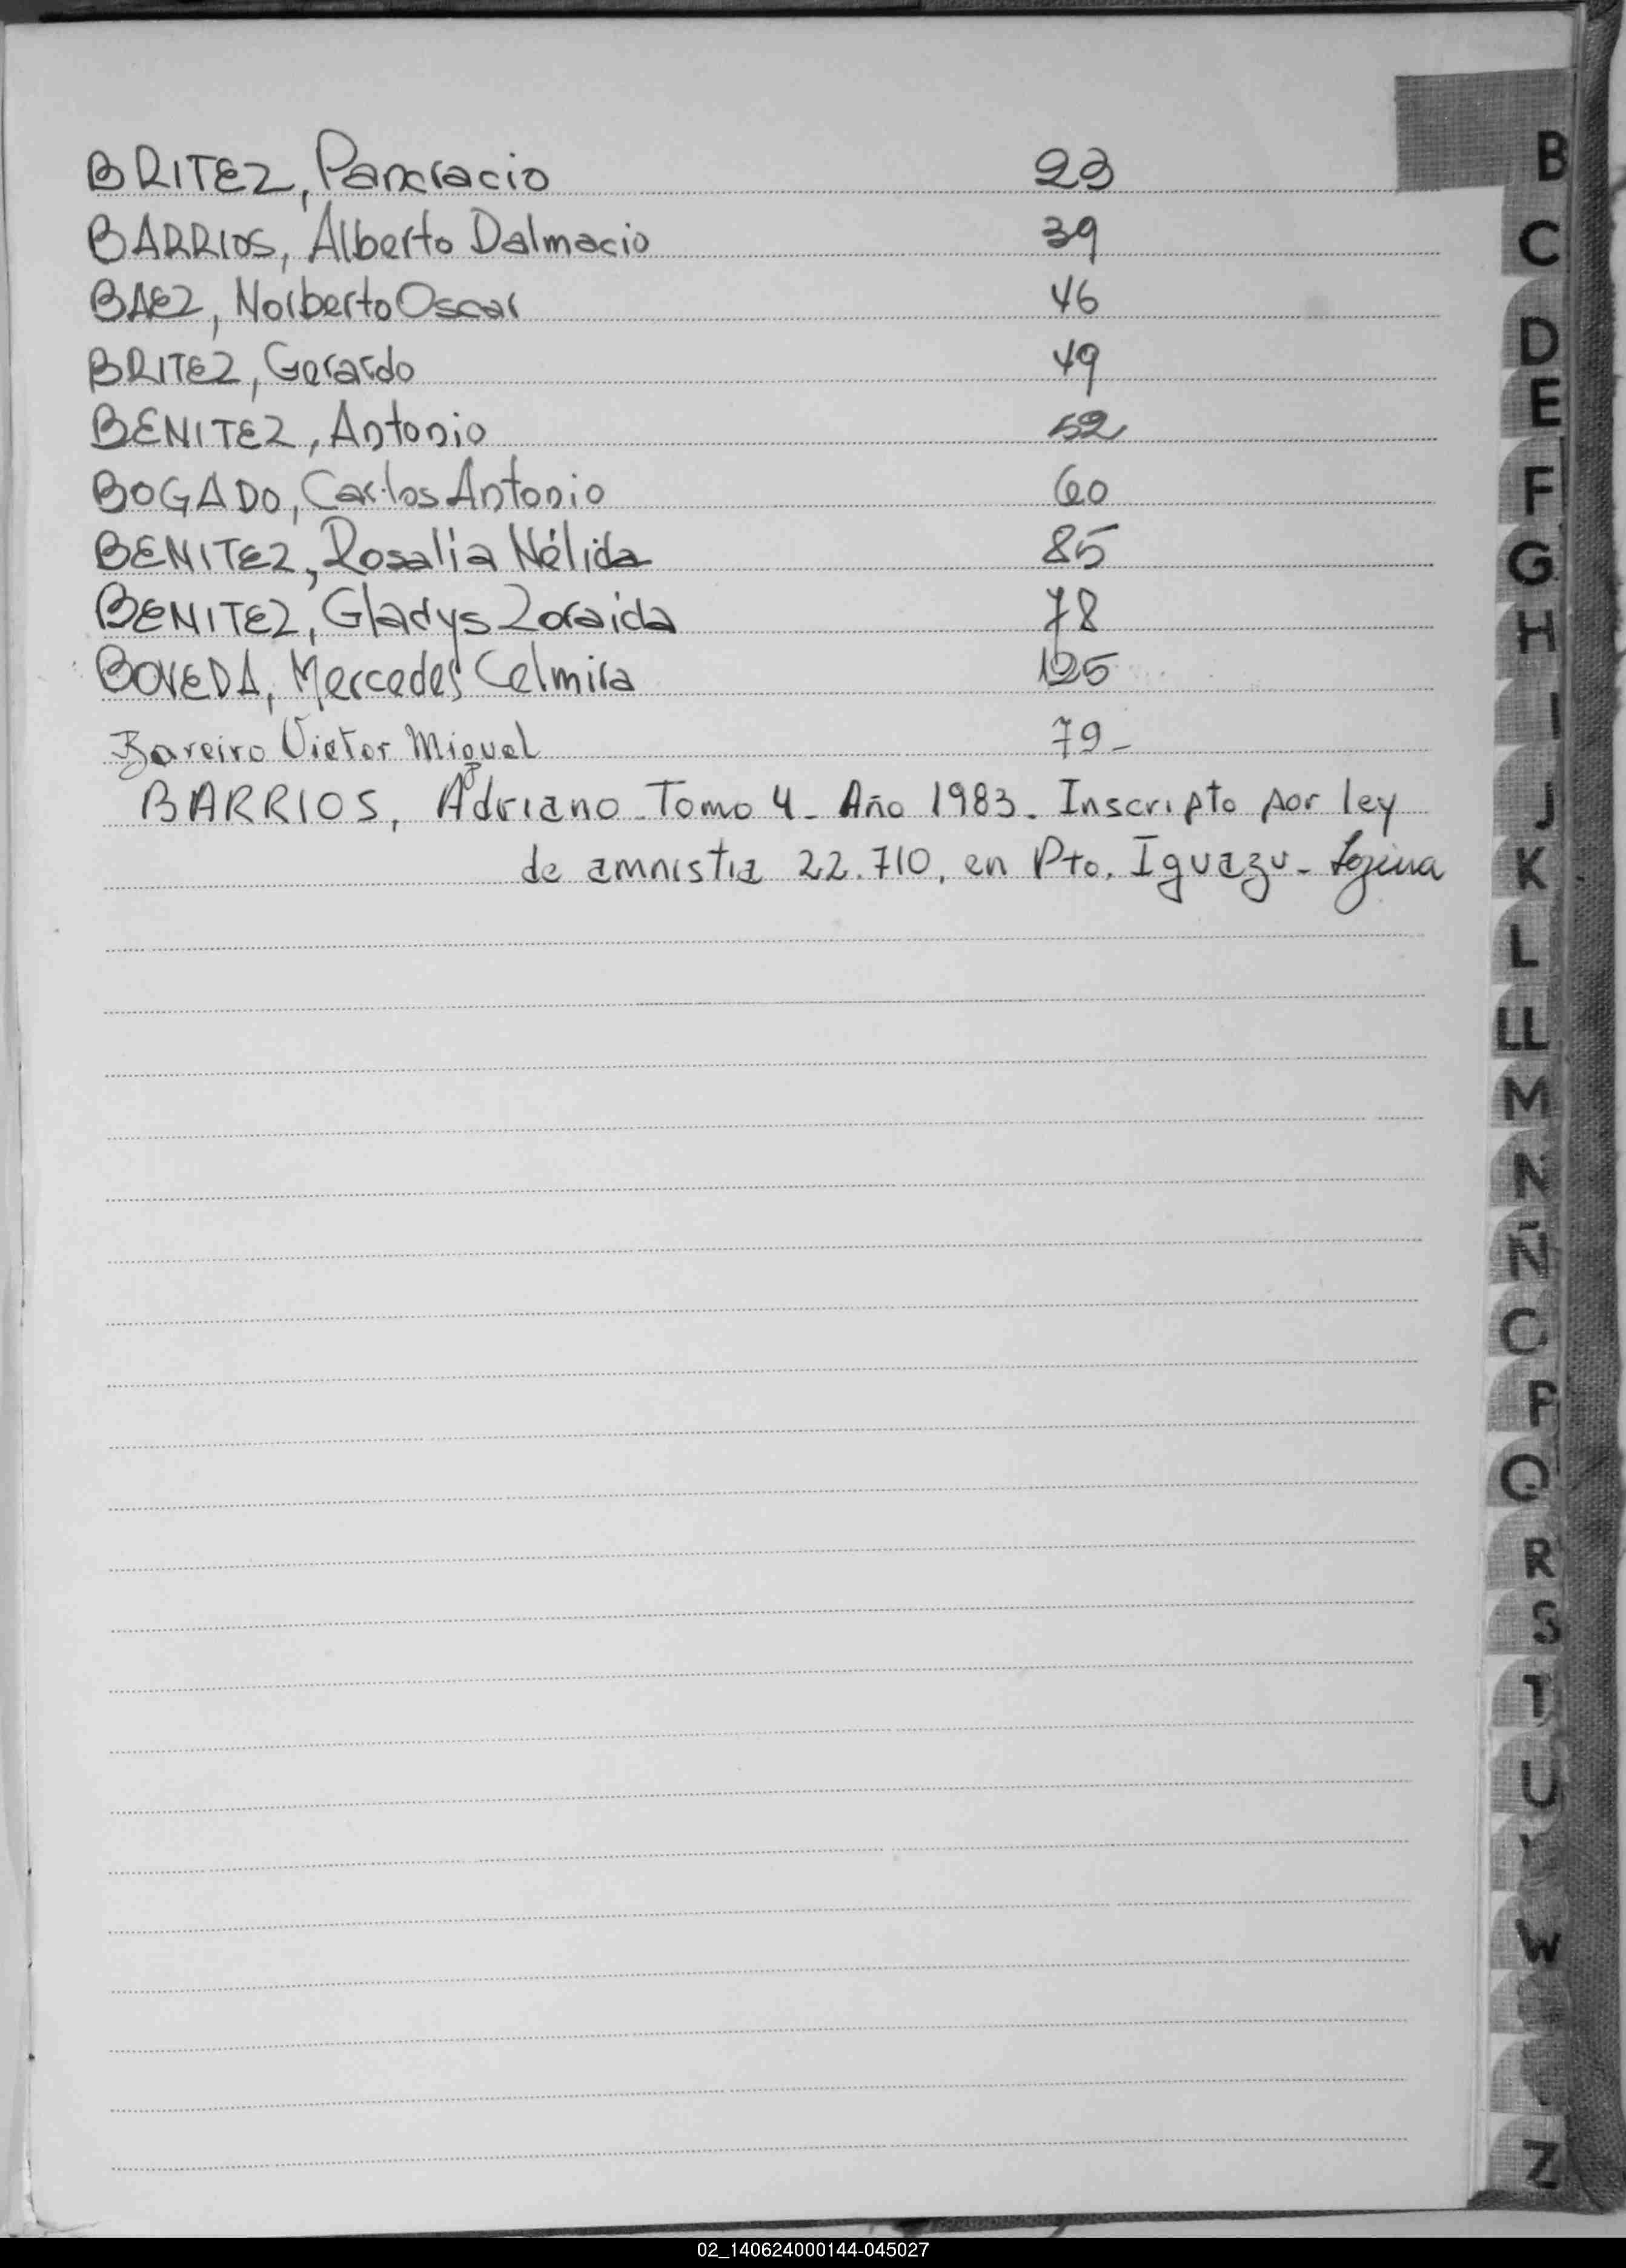 BRITEZ, Pancracio 23
BARRIOS, Alberto Dalmacio 39
BAEZ, Norberto Oscar 46
BRITEZ, Gerardo 49
BENITEZ, Antonio 52
BOGADO, Carlos Antonio 60
BENITEZ, Rosalia Nélida 85
BENITEZ, Gladys Zoraida 78
BOVEDA, Mercedes Celmira 125
Bareiro Victor Miguel 79-
BARRIOS, Adriano. Tomo 4- Año 1983. Inscripto por ley
de amnistia 22.710, en Pto. Iguazu-
B
C
D
E
F
G
H
I
J
K
L
LL
M
N
Ñ
O
P
Q
R
S
T
U
W
Z
02_140624000144-045027